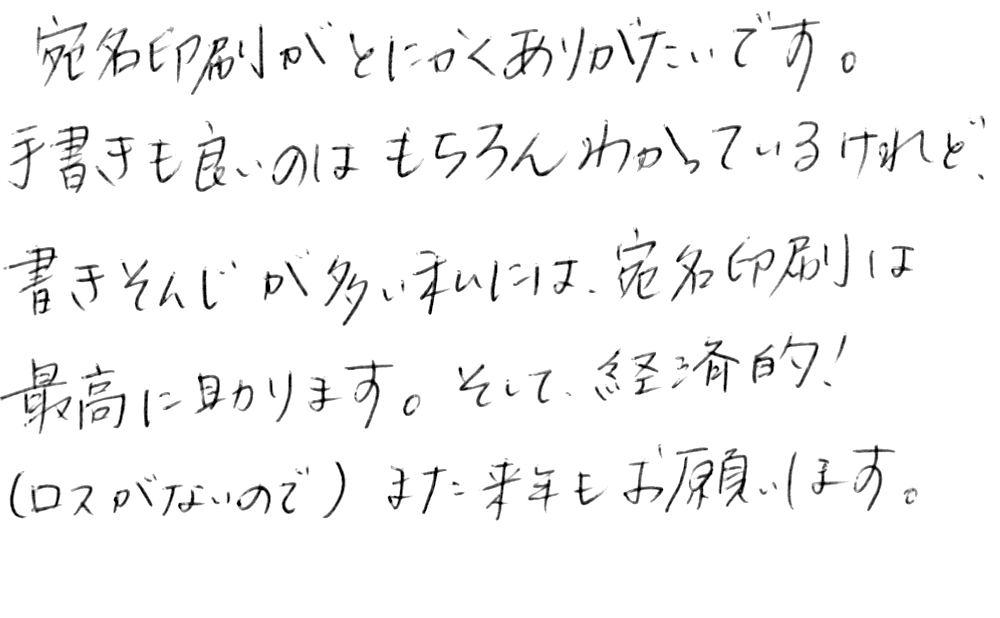 宛名印刷がとにかくありがたいです。
手書きも良いのはもちろんわかっているけれど、
書きそんじが多い私には、宛名印刷は
最高に助かります。そして、経済的!
(ロスがないので) また来年もお願いします。